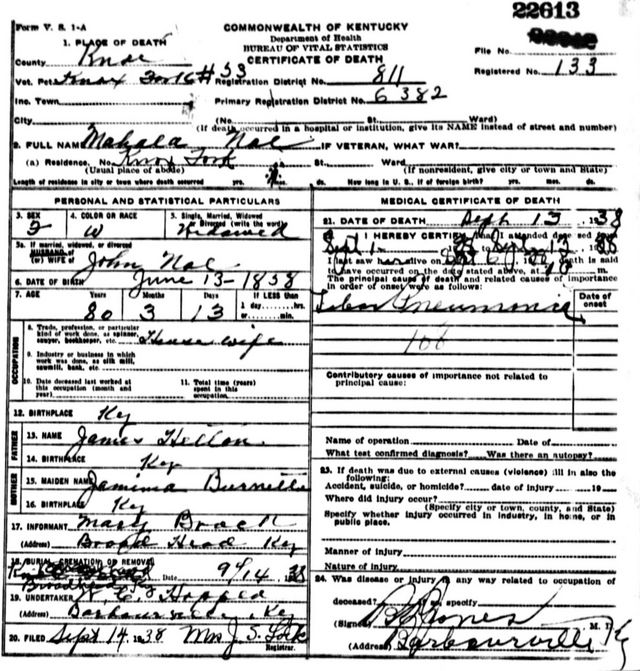 22613
Form V. S. 1-A
COMMONWEALTH OF KENTUCKY
Department of Health
BUREAU OF VITAL STATISTICS
CERTIFICATE OF DEATH
File No.
Registered No. 133
1. PLACE OF DEATH
County Knox
Vot. Pct. Knox Fork #53
Registration District No. 811
Inc. Town
Primary Registration District No. 6382
City
(No. St. Ward)
(If death occurred in a hospital or institution, give its NAME instead of street and number)
2. FULL NAME Mahala Noe
IF VETERAN, WHAT WAR?
(a) Residence. No. Knox Fork St. Ward
(Usual place of abode)
(If nonresident, give city or town and State)
Length of residence in city or town where death occurred yrs. mos. ds. How long in U. S., if of foreign birth? yrs. mos. ds.
PERSONAL AND STATISTICAL PARTICULARS
3. SEX F
4. COLOR OR RACE W
5. Single, Married, Widowed or Divorced (write the word) Widowed
5a. If married, widowed, or divorced
HUSBAND of
(or) WIFE of John Noe
6. DATE OF BIRTH June 13-1858
7. AGE Years 80 Months 3 Days 13
If LESS than 1 day, hrs. or min.
OCCUPATION
8. Trade, profession, or particular kind of work done, as spinner, sawyer, bookkeeper, etc. House wife
9. Industry or business in which work was done, as silk mill, sawmill, bank, etc.
10. Date deceased last worked at this occupation (month and year)
11. Total time (years) spent in this occupation
12. BIRTHPLACE Ky
FATHER
13. NAME James Helton
14. BIRTHPLACE Ky
MOTHER
15. MAIDEN NAME Jamima Burnette
16. BIRTHPLACE Ky
17. INFORMANT Mary Brock
(Address) Brood Head Ky
18. BURIAL, CREMATION OR REMOVAL
Date 9/14 1938
19. UNDERTAKER Hopper
(Address) Barbourville Ky
20. FILED Sept 14 1938 Mrs J. S. Lock
Registrar.
MEDICAL CERTIFICATE OF DEATH
21. DATE OF DEATH Sept 13 1938
22. I HEREBY CERTIFY, That I attended deceased from
Sept 1- 1938 to Sept 13 1938
I last saw her alive on 1938 death is said
to have occurred on the date stated above, at m.
The principal cause of death and related causes of importance
in order of onset were as follows:
Date of onset
Lobar Pneumonia
108
Contributory causes of importance not related to
principal cause:
Name of operation Date of
What test confirmed diagnosis? Was there an autopsy?
23. If death was due to external causes (violence) fill in also the
following:
Accident, suicide, or homicide? date of injury 19
Where did injury occur?
(Specify city or town, county, and State)
Specify whether injury occurred in industry, in home, or in
public place.
Manner of injury
Nature of injury
24. Was disease or injury in any way related to occupation of
deceased? If so, specify
(Signed) Jones M. D.
(Address) Barbourville Ky